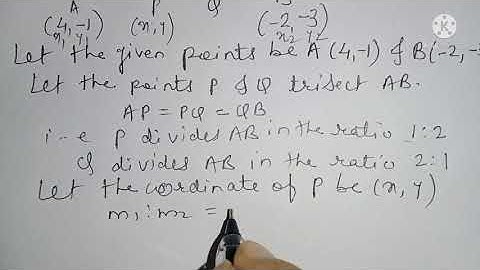 A P Q B
(4,-1) (x,y) (-2,-3)
x, y, x₂ y₂
Let the given points be A (4,-1) & B(-2, -3
Let the points P & Q trisect AB.
AP = PQ = QB
i-e P divides AB in the ratio 1:2
Q divides AB in the ratio 2:1
Let the coordinate of P be (x, y)
m₁:m₂ =